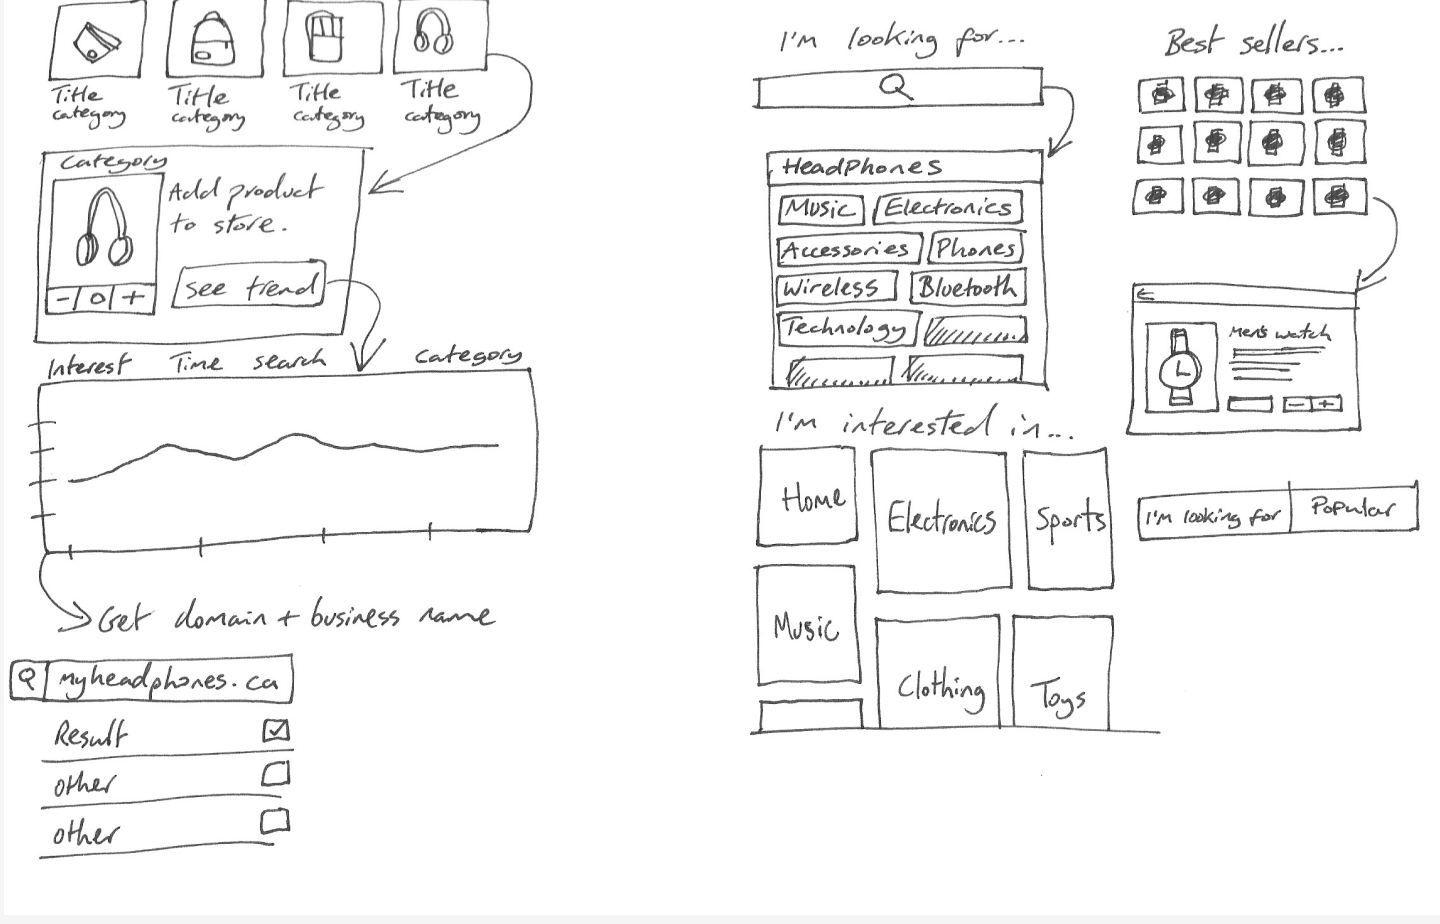 Title
category
Title
category
Title
category
Title
category
Category
Add product
to store.
- 0 +
see trend
Interest Time search Category
Get domain + business name
myheadphones.ca
Result
other
other
I'm looking for...
HeadPhones
Music Electronics
Accessories Phones
Wireless Bluetooth
Technology
I'm interested in...
Home
Electronics
Sports
Music
Clothing
Toys
Best sellers...
Men's watch
- +
I'm looking for Popular